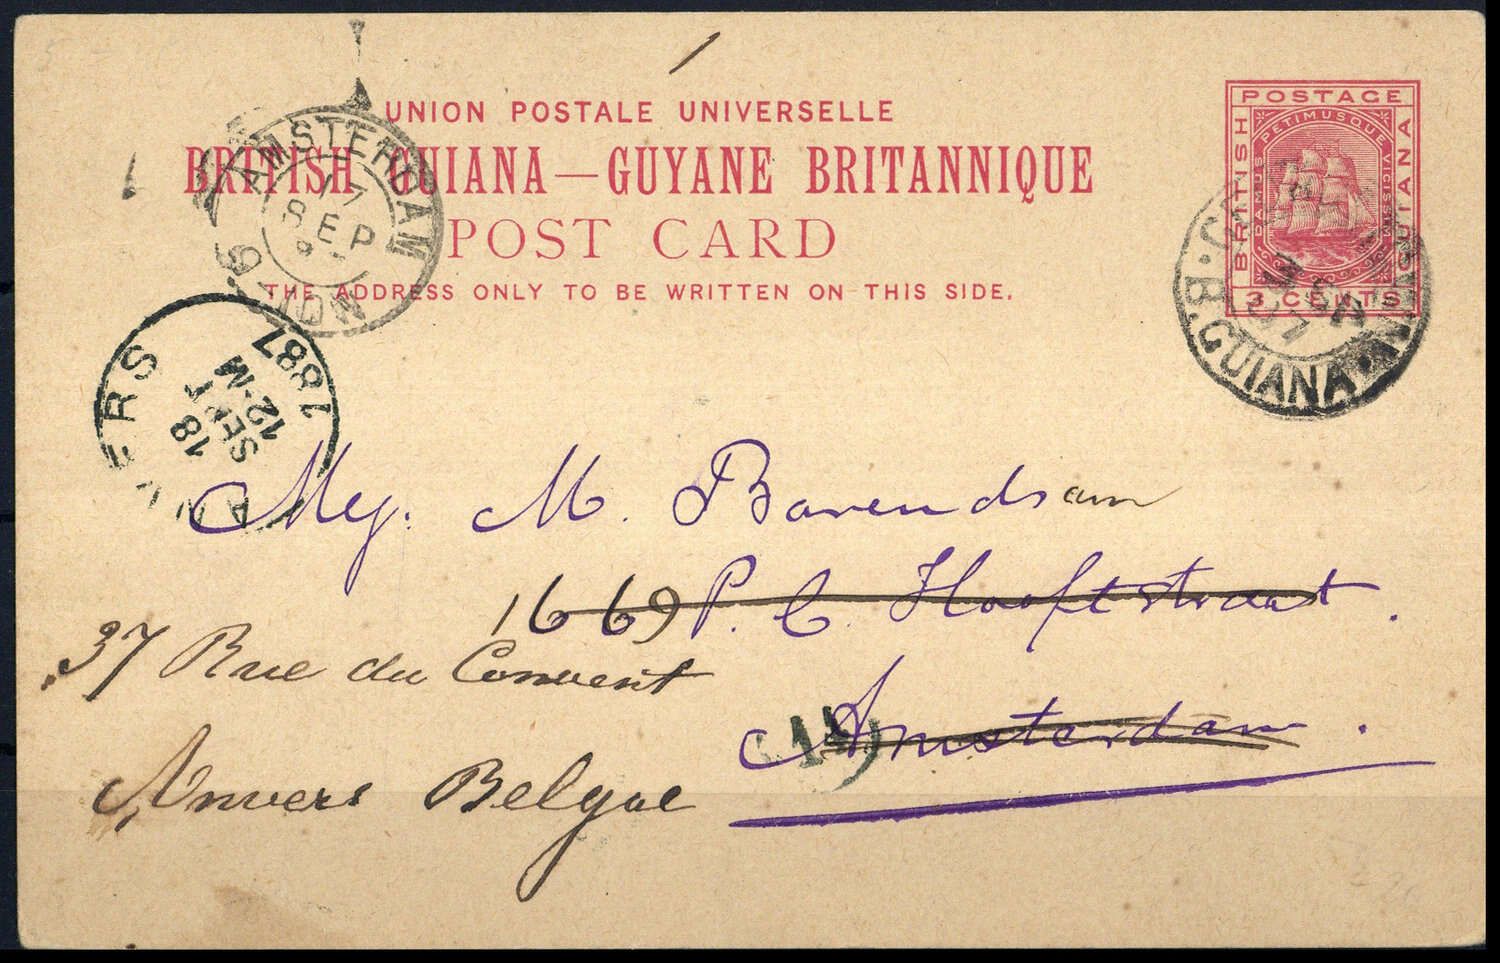 1
UNION POSTALE UNIVERSELLE
BRITISH GUIANA—GUYANE BRITANNIQUE
POST CARD
THE ADDRESS ONLY TO BE WRITTEN ON THIS SIDE.
POSTAGE
BRITISH
GUIANA
DAMUS PETIMUSQUE VICISSIM
3 CENTS
AMSTERDAM
17
SEP
B. GUIANA
ANVERS
18
SEPT
12-M
1887
Mej. M. Barendsam
1669 P. C. Hooftstraat.
37 Rue du Convent
Amsterdam.
Anvers Belgue